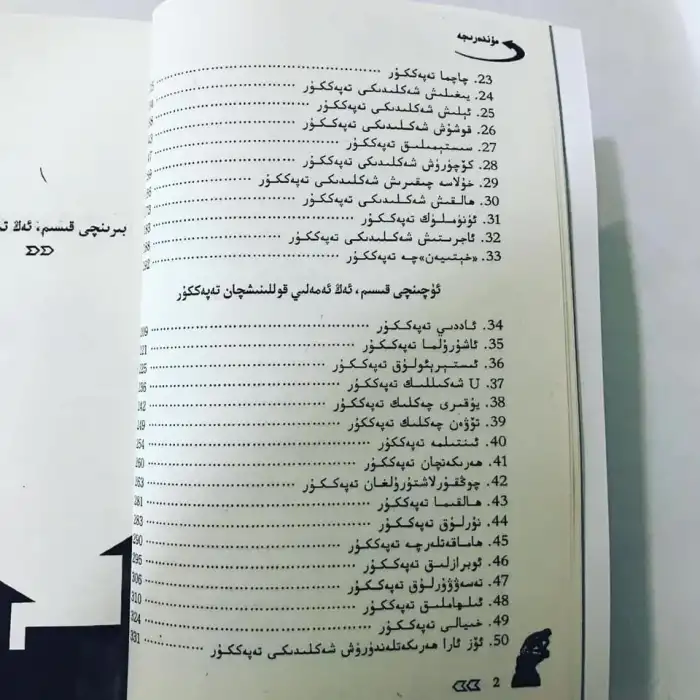 مۇندەرىجە
23. چاچما تەپەككۇر
24. يىغىلىش شەكلىدىكى تەپەككۇر
25. ئېلىش شەكلىدىكى تەپەككۇر
26. قوشۇش شەكلىدىكى تەپەككۇر
27. سىستېمىلىق تەپەككۇر
28. كۆچۈرۈش شەكلىدىكى تەپەككۇر
29. خۇلاسە چىقىرىش شەكلىدىكى تەپەككۇر
30. ھالقىش شەكلىدىكى تەپەككۇر
31. ئۈنۈملۈك تەپەككۇر
32. ئاجرىتىش شەكلىدىكى تەپەككۇر
33. «خېتىيەن»چە تەپەككۇر
ئۈچىنچى قىسىم، ئەڭ ئەمەلىي قوللىنىشچان تەپەككۇر
34. ئاددىي تەپەككۇر
35. ئاشۇرۇلما تەپەككۇر 221
36. ئىستېرېئولۇق تەپەككۇر
37. U شەكىللىك تەپەككۇر 236
38. يۇقىرى چەكلىك تەپەككۇر 242
39. تۆۋەن چەكلىك تەپەككۇر 249
40. ئىنتىلمە تەپەككۇر 254
41. ھەرىكەتچان تەپەككۇر 260
42. چوڭقۇرلاشتۇرۇلغان تەپەككۇر 263
43. ھالقىما تەپەككۇر 281
44. نۇرلۇق تەپەككۇر 283
45. ھاماقەتلەرچە تەپەككۇر 290
46. ئوبرازلىق تەپەككۇر 295
47. تەسەۋۋۇرلۇق تەپەككۇر 306
48. ئىلھاملىق تەپەككۇر 310
49. خىيالى تەپەككۇر 324
50. ئۆز ئارا ھەرىكەتلەندۈرۈش شەكلىدىكى تەپەككۇر 331
2
بىرىنچى قىسىم، ئەڭ